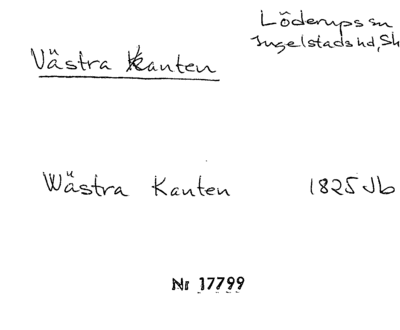 Löderups sn
Ingelstads hd, Sk
Västra Kanten
Wästra Kanten 1825 Jb
Nr 17799